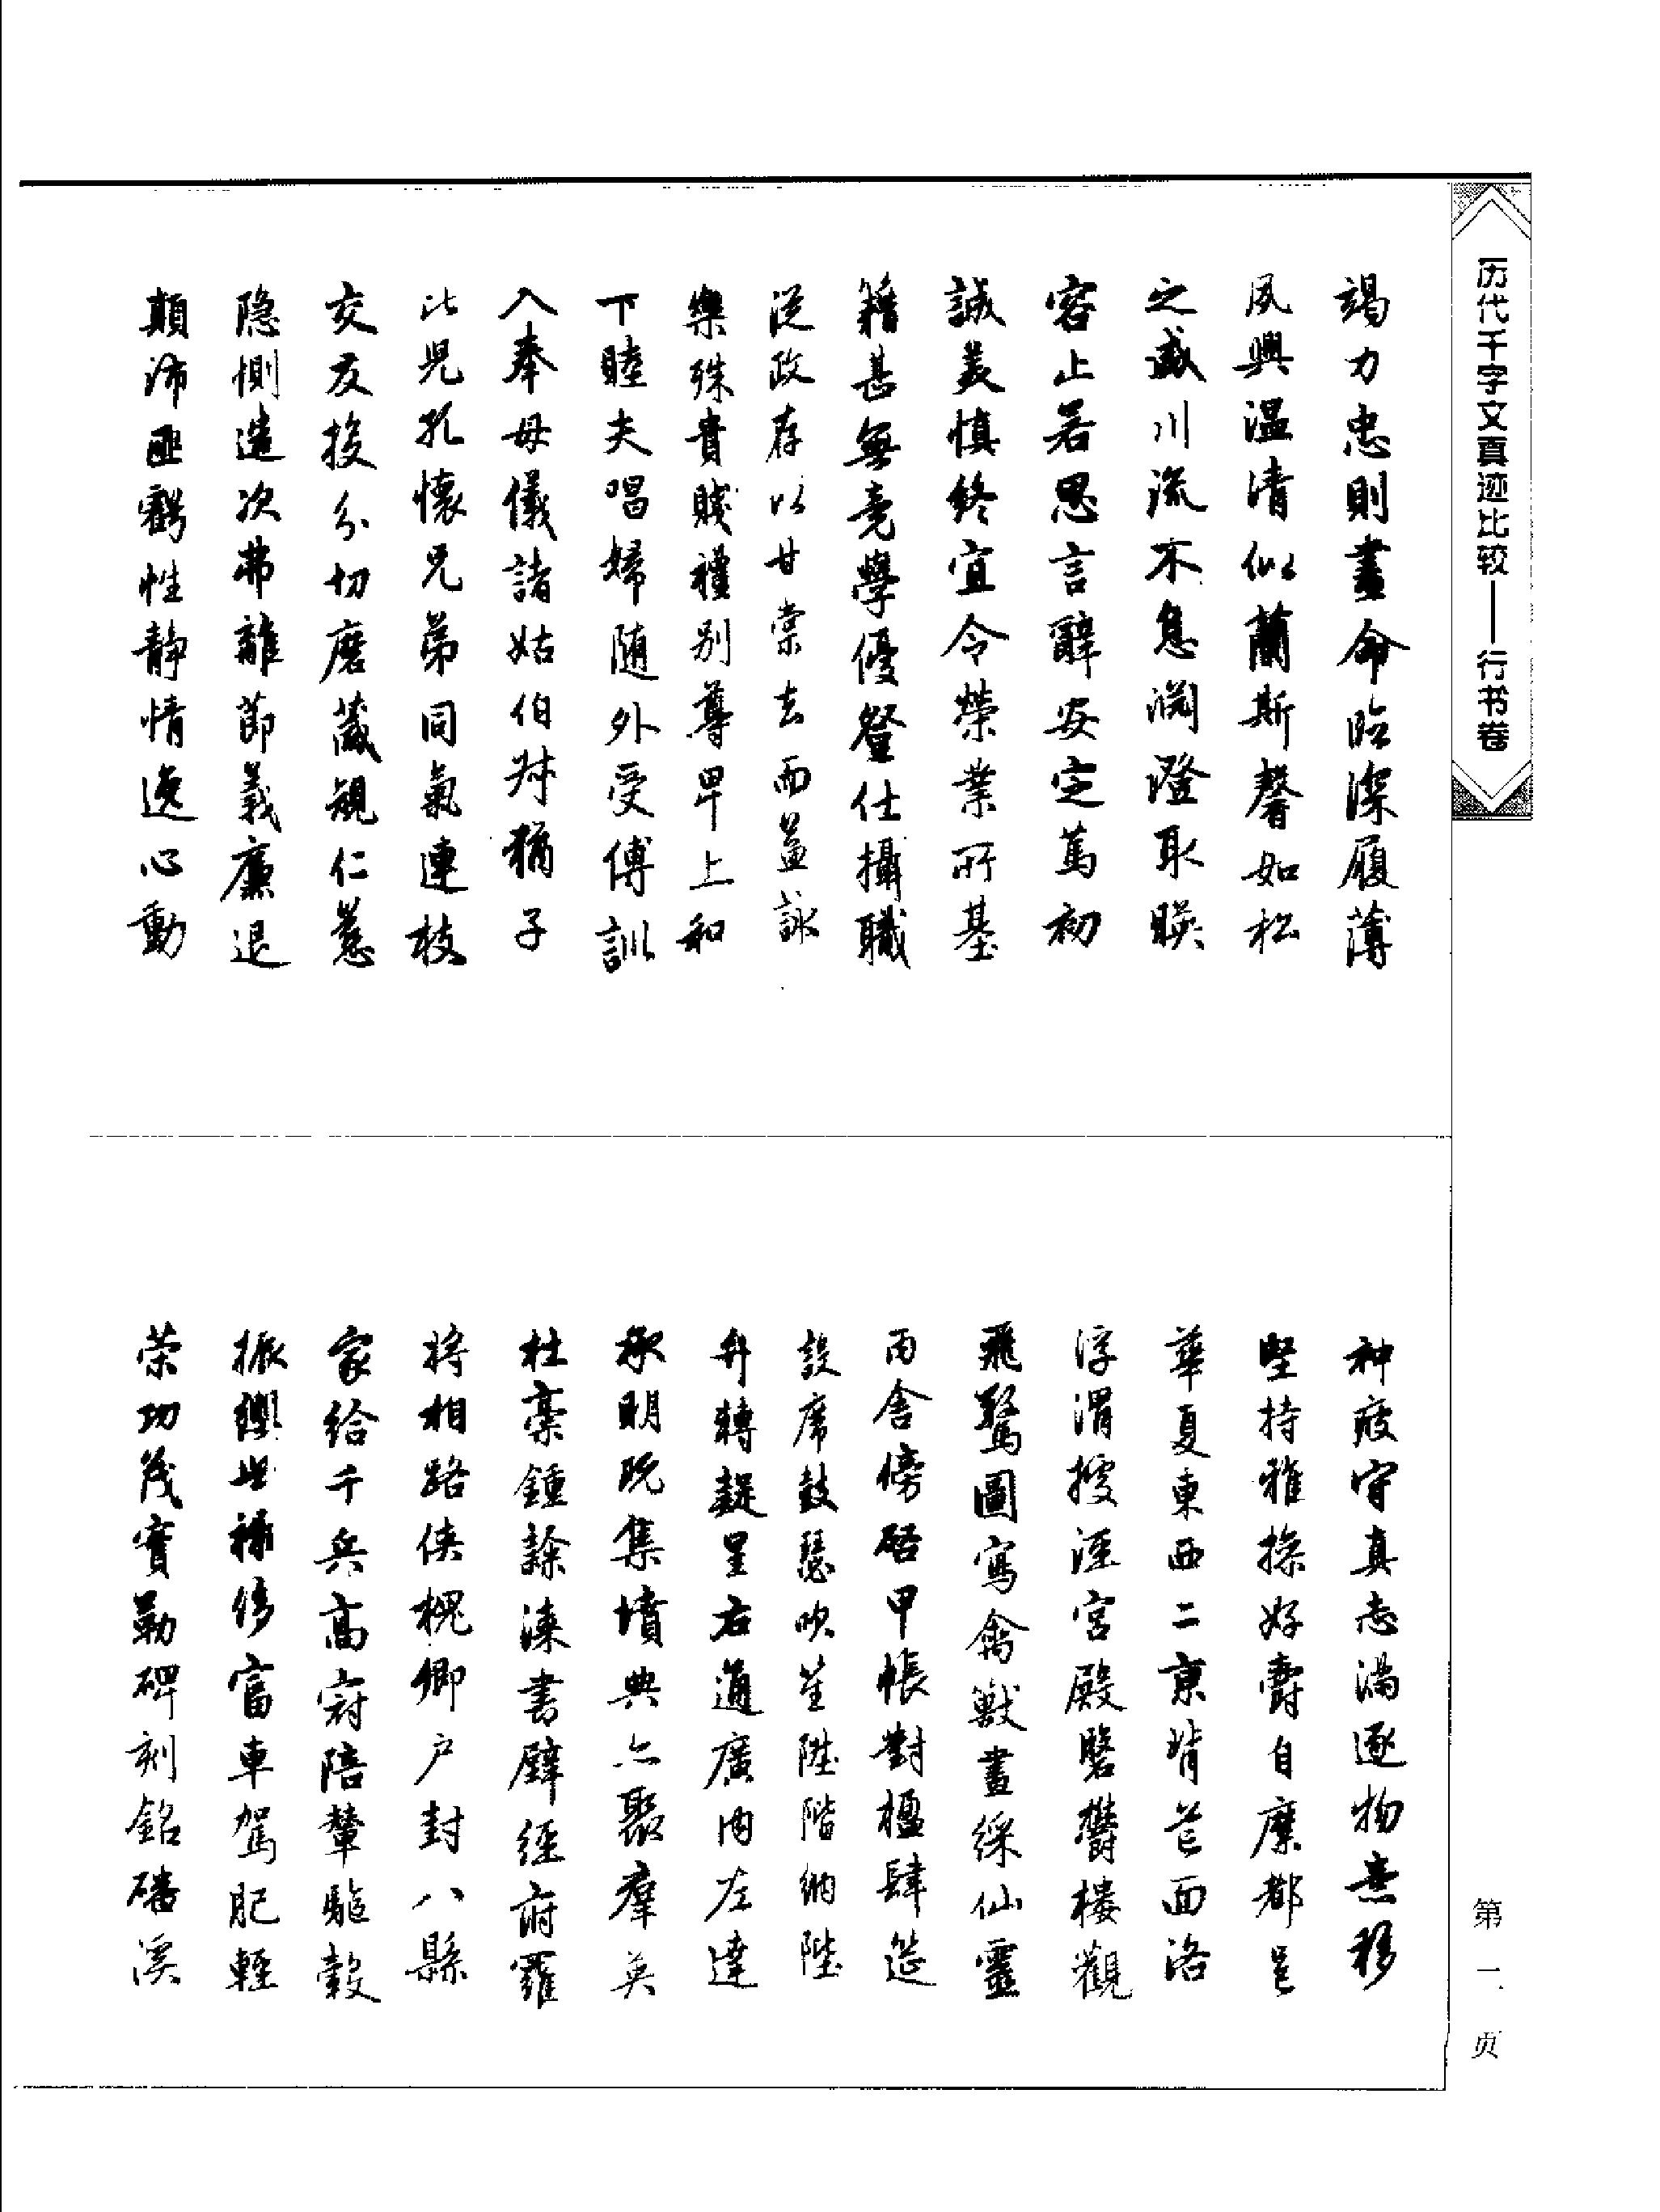 历代千字文真迹比较——行书卷
竭力忠則盡命臨深履薄
夙興温凊似蘭斯馨如松
之盛川流不息淵澄取暎
容止若思言辭安定篤初
誠美慎終宜令榮業所基
籍甚無竟學優登仕攝職
從政存以甘棠去而益詠
樂殊貴賤禮别尊卑上和
下睦夫唱婦随外受傅訓
入奉母儀諸姑伯叔猶子
比兒孔懷兄弟同氣連枝
交友投分切磨葴規仁慈
隐惻造次弗離節義廉退
顛沛匪虧性静情逸心動
神疲守真志滿逐物意移
堅持雅操好爵自縻都邑
華夏東西二京背芒面洛
浮渭據涇宫殿盤欝樓觀
飛驚圖寫禽獸畫綵仙靈
丙舍傍啓甲帳對楹肆筵
設席鼓瑟吹笙陞階納陛
弁轉疑星右通廣内左達
承明既集墳典亦聚羣英
杜稾鍾隸漆書壁經府羅
將相路俠槐卿户封八縣
家給千兵高冠陪輦驅轂
振纓世禄侈富車駕肥輕
策功茂實勒碑刻銘磻溪
第一页